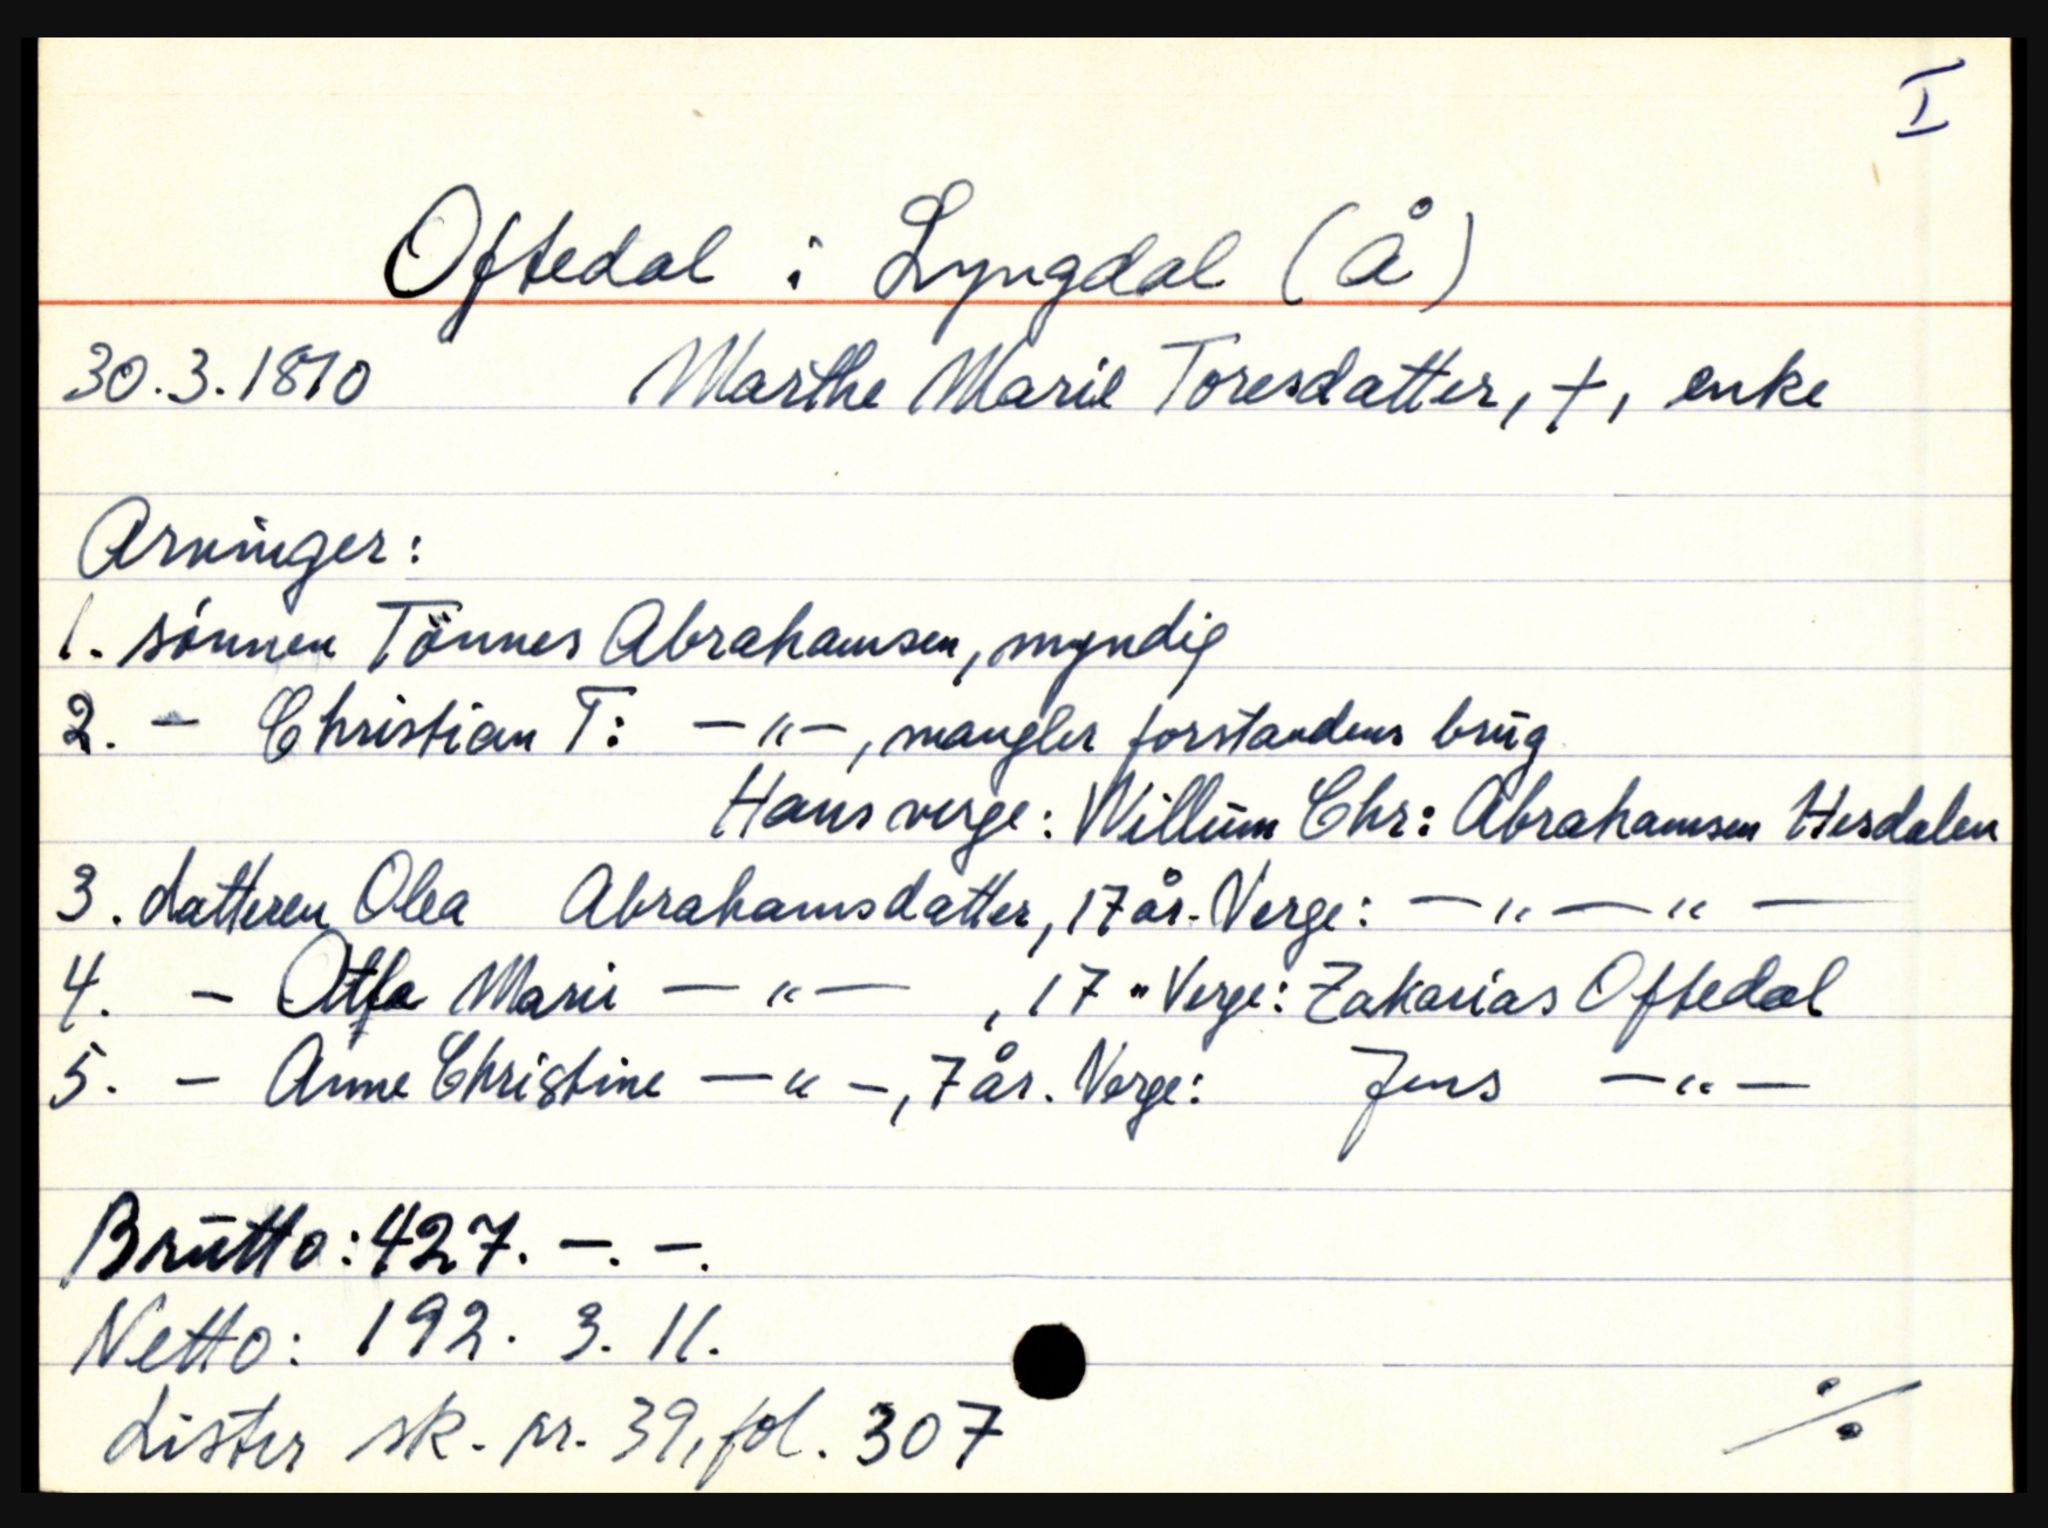 I
Oftedal i Lyngdal (Å)
30.3.1870 Marthe Marie Toresdatter, †, enke
Arvinger:
1. sönnen Tönnes Abrahamsen, myndig
2. - Christian T: —"—, mangler forstandens brug
Hans verge: Willum Chr: Abrahamsen Hesdalen
3. datteren Olea Abrahamsdatter, 17 år. Verge: —"—"—
4. - Marie —"— , 17 " Verge: Zakarias Oftedal
5. - Anne Christine —"—, 7 år. Verge: Jens —"—
Brutto: 427. —. —.
Netto: 192. 3. 11.
Lister sk. pr. 39, fol. 307
%